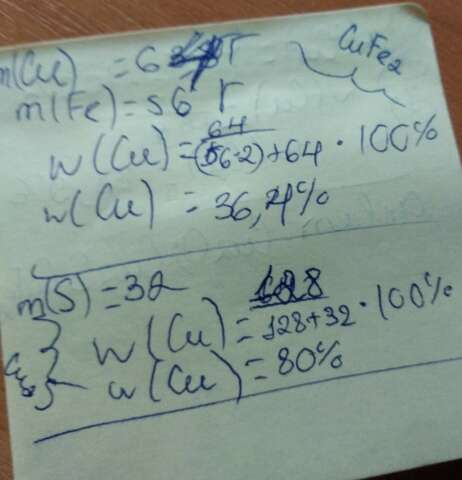 m(Cu) = 64 г
CuFe2
m(Fe) = 56 г
w(Cu) = 64/((56·2)+64) · 100%
w(Cu) = 36,4%
m(S) = 32
w(Cu) = 128/(128+32) · 100%
w(Cu) = 80%